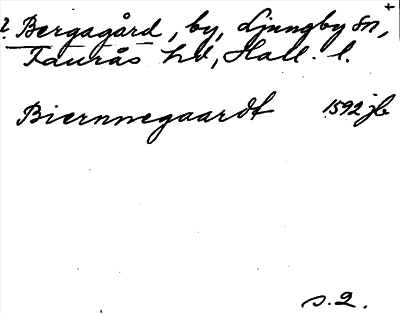 ? Bergagård, by, Ljungby sn, +
Faurås hd, Hall. l.
Biernnegaardt 1592 jb
s. 2.